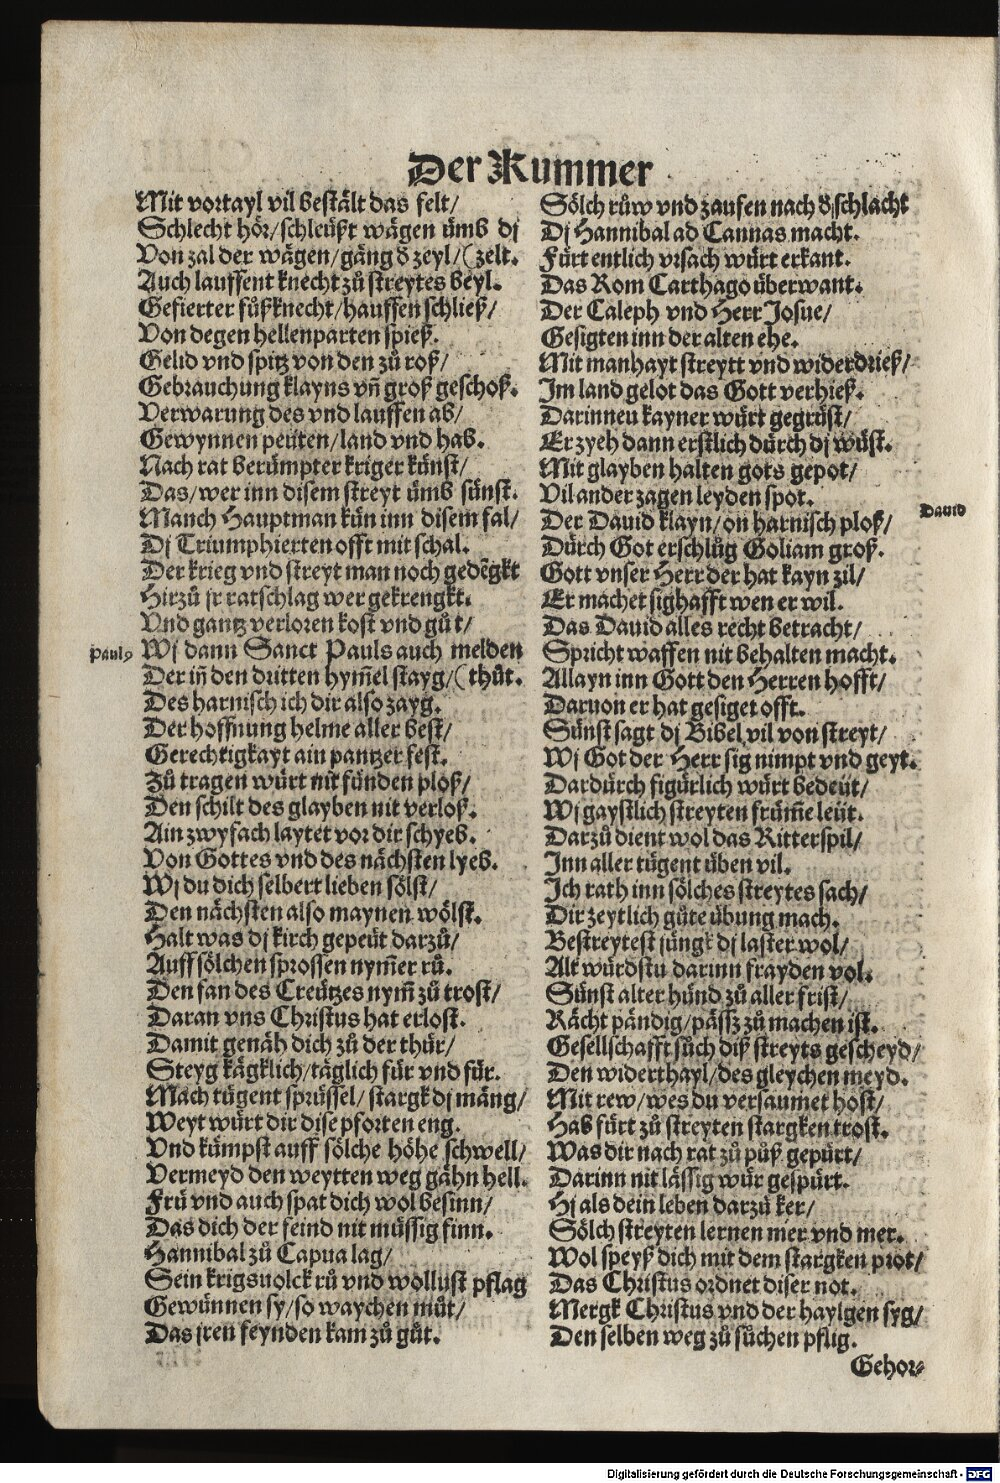 Der Kummer
Mit vortayl vil bestält das felt/
Schlecht hör/schleüßt wägen ümb dj
Von zal der wägen/gäng d̕ zeyl/(zelt.
Auch lauffent knecht zů streytes beyl.
Gefierter füßknecht/hauffen schließ/
Von degen hellenparten spieß.
Gelid vnd spitz von den zů roß/
Gebrauchung klayns vn̄ groß geschoß.
Verwarung des vnd lauffen ab/
Gewynnen peüten/land vnd hab.
Nach rat berümpter kriger künst/
Das/wer inn disem streyt ümb sünst.
Manch Hauptman kün inn disem fal/
Dj Triumphierten offt mit schal.
Der krieg vnd streyt man noch gedēgkt
Hirzů jr ratschlag wer gekrengkt.
Vnd gantz verloren kost vnd gůt/
Pauls
Wj dann Sanct Pauls auch melden
Der in̄ den dritten hym̄el stayg/(thůt.
Des harnisch ich dir also zayg.
Der hoffnung helme aller best/
Gerechtigkayt ain pantzer fest.
Zů tragen würt mit sünden ploß/
Den schilt des glayben nit verloß.
Ain zwyfach laytet vor dir schyeb.
Von Gottes vnd des nächsten lyeb.
Wj du dich selbert lieben sölst/
Den nächsten also maynen wölst.
Halt was dj kirch gepeüt darzů/
Auff sölchen sprossen nym̄er rů.
Den fan des Creützes nym̄ zů trost/
Daran vns Christus hat erlost.
Damit genäh dich zů der thür/
Steyg kägklich/täglich für vnd für.
Mach tügent sprüssel/stargk dj mäng/
Weyt würt dir dise pforten eng.
Vnd kümpst auff sölche höhe schwell/
Vermeyd den weytten weg gähn hell.
Frü vnd auch spat dich wol besinn/
Das dich der feind nit müssig finn.
Hannibal zů Capua lag/
Sein krigsuolck rů vnd wollust pflag
Gewünnen sy/so waychen můt/
Das jren feynden kam zů gůt.
Sölch růw vnd zausen nach d̕ schlacht
Dj Hannibal ad Cannas macht.
Fürt entlich vrsach würt erkant.
Das Rom Carthago überwant.
Der Caleph vnd Herr Josue/
Gesigten inn der alten ehe.
Mit manhayt streytt vnd widerdrieß/
Im land gelot das Gott verhieß.
Darinneu kayner würt gegrüst/
Er zyeh dann erstlich dürch dj wüst.
Mit glayben halten gots gepot/
Vil ander zagen leyden spot.
David
Der Dauid klayn/on harnisch ploß/
Dürch Got erschlůg Goliam groß.
Gott vnser Herr der hat kayn zil/
Er machet sighafft wen er wil.
Das Dauid alles recht betracht/
Spricht waffen nit behalten macht.
Allayn inn Gott den Herren hofft/
Daruon er hat gesiget offt.
Sünst sagt dj Bibel vil von streyt/
Wj Got der Herr sig nimpt vnd geyt.
Dardürch figürlich würt bedeüt/
Wj gaystlich streyten früm̄e leüt.
Darzů dient wol das Ritterspil/
Inn aller tügent üben vil.
Ich rath inn sölches streytes sach/
Dir zeytlich gůte übung mach.
Bestreytest jüngk dj laster wol/
Alt würdstu darinn frayden vol.
Sünst alter hünd zů aller frist/
Rächt pändig/pässz zů machen ist.
Gesellschafft sůch diß streyts gescheyd/
Den widerthayl/des gleychen meyd.
Mit rew/wes du versaumet host/
Hab fürt zů streyten stargken trost.
Was dir nach rat zů půß gepürt/
Darinn nit lässig wür gespürt.
Hj als dein leben darzů ker/
Sölch streyten lernen mer vnd mer.
Wol speyß dich mit dem stargken prot/
Das Christus ordnet diser not.
Mergk Christus vnd der haylgen syg/
Den selben weg zů sůchen pflig.
Gehor-
Digitalisierung gefördert durch die Deutsche Forschungsgemeinschaft - DFG